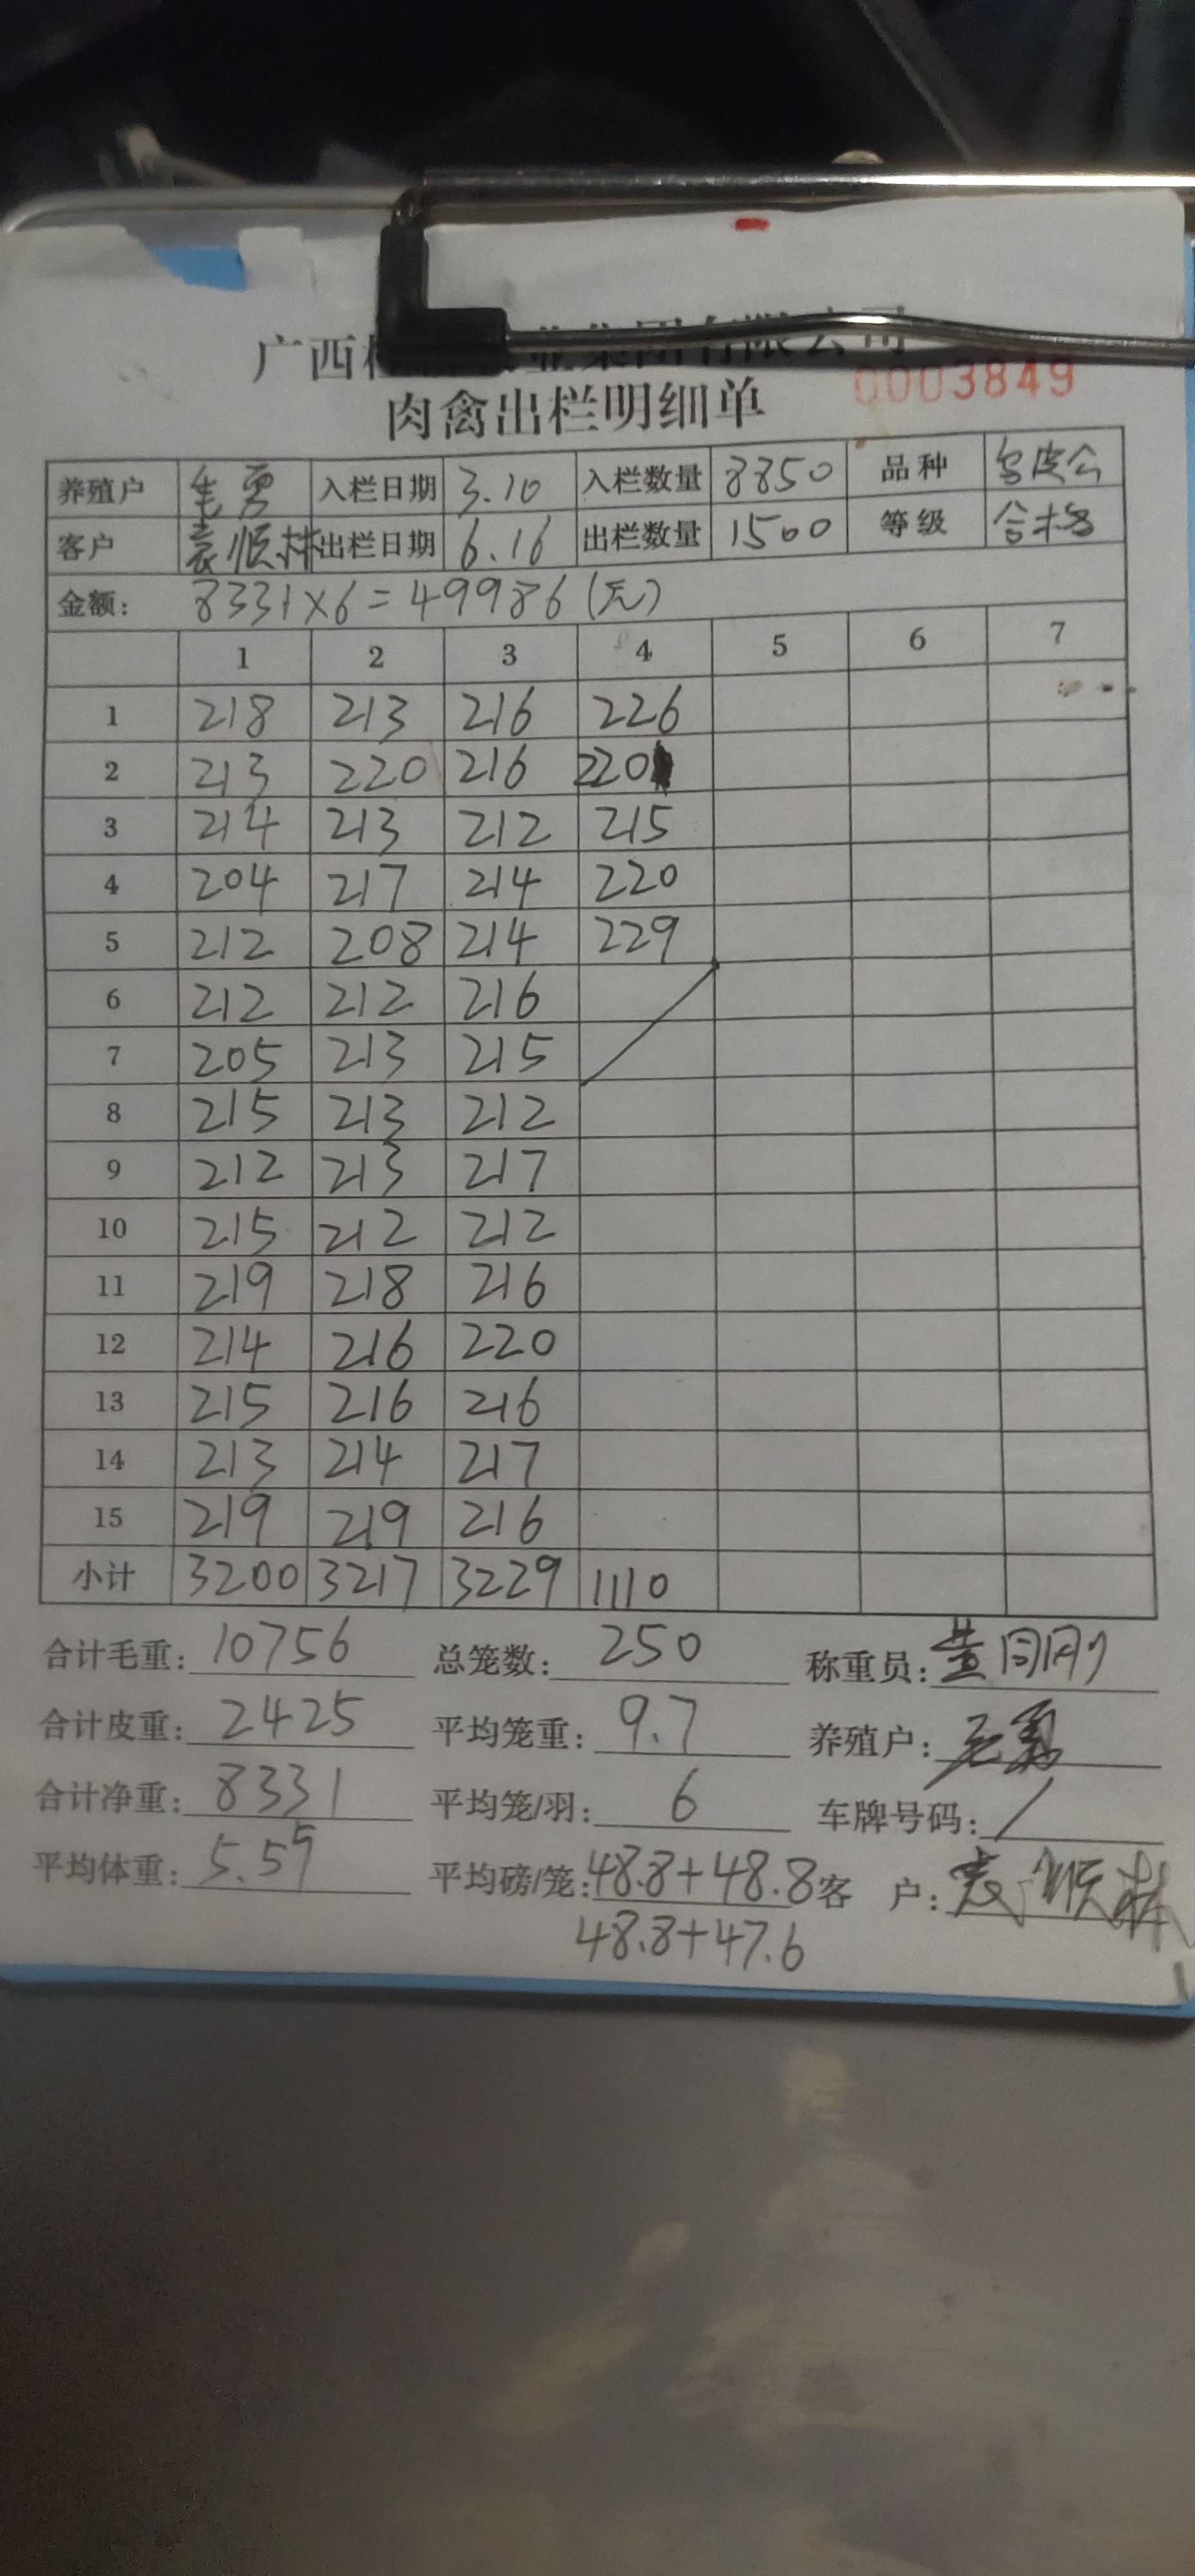 广西
集团有限公司
0003849
肉禽出栏明细单
养殖户 毛勇 入栏日期 3.10 入栏数量 8850 品种 乌皮公
客户 袁顺林 出栏日期 6.16 出栏数量 1500 等级 合格
金额: 8331×6=49986(元)
1 2 3 4 5 6 7
1 218 213 216 226
2 213 220 216 220
3 214 213 212 215
4 204 217 214 220
5 212 208 214 229
6 212 212 216
7 205 213 215
8 215 213 212
9 212 213 217
10 215 212 212
11 219 218 216
12 214 216 220
13 215 216 216
14 213 214 217
15 219 219 216
小计 3200 3217 3229 1110
合计毛重: 10756 总笼数: 250 称重员:
合计皮重: 2425 平均笼重: 9.7 养殖户: 毛勇
合计净重: 8331 平均笼/羽: 6 车牌号码: /
平均体重: 5.55 平均磅/笼: 48.8+48.8 客 户: 袁顺林
48.8+47.6